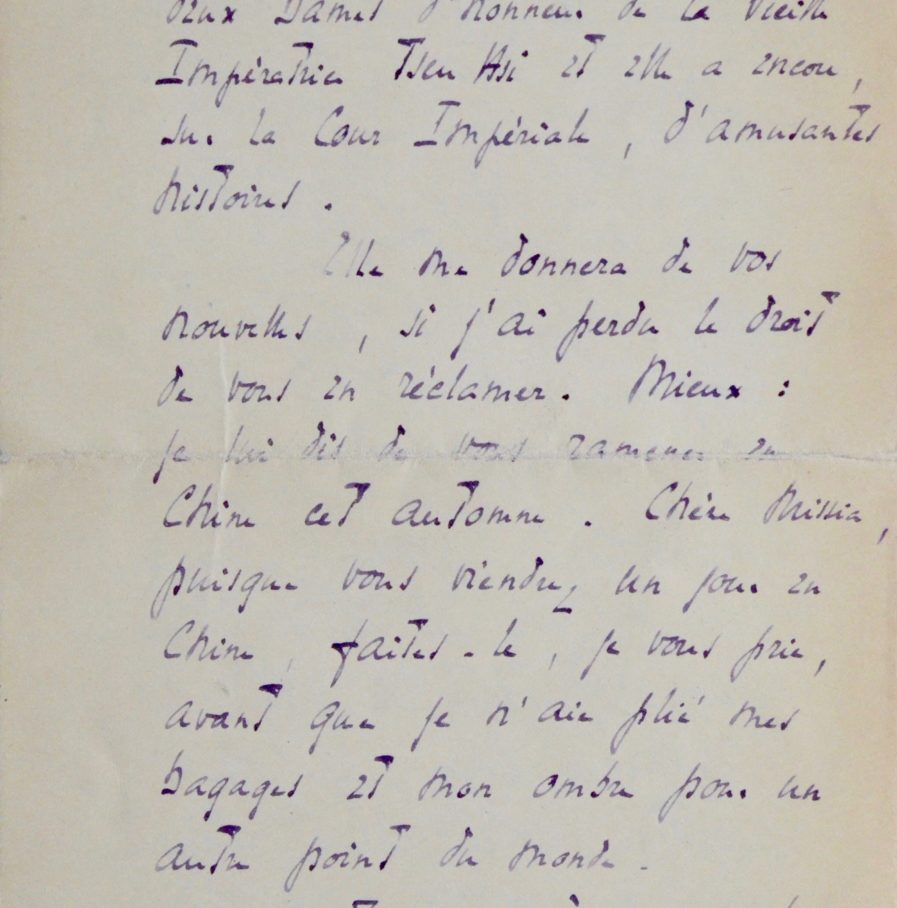 deux Dames d'honneur de la vieille
Impératrice Tseu Hsi et elle a encore,
sur la Cour Impériale, d'amusantes
histoires.
Elle me donnera de vos
nouvelles, si j'ai perdu le droit
de vous en réclamer. Mieux :
je lui dis de vous ramener en
Chine cet automne. Chère Missia,
puisque vous viendrez un jour en
Chine, faites-le, je vous prie,
avant que je n'aie plié mes
bagages et mon ombre pour un
autre point du monde.